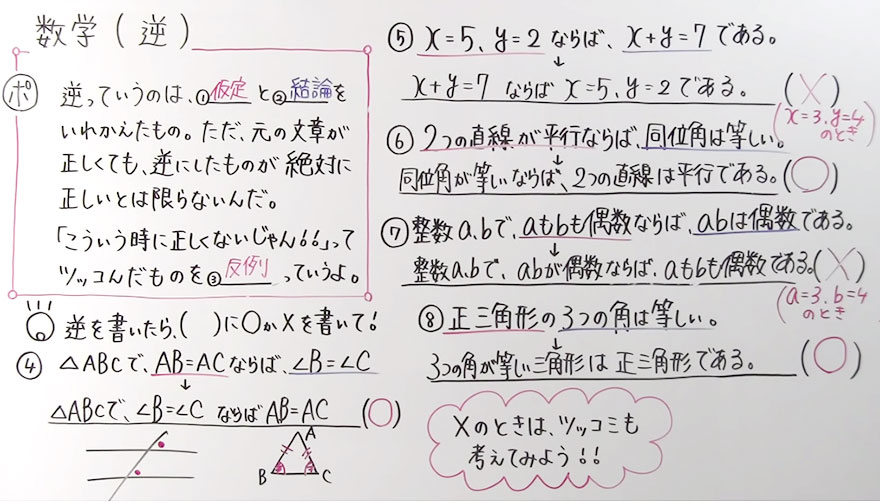 数学(逆)
ポ
逆っていうのは、①仮定と②結論を
いれかえたもの。ただ、元の文章が
正しくても、逆にしたものが絶対に
正しいとは限らないんだ。
「こういう時に正しくないじゃん!!」って
ツッコんだものを③反例っていうよ。
逆を書いたら、( )に○か×を書いて!
④ △ABCで、AB=ACならば、∠B=∠C
↓
△ABCで、∠B=∠C ならば AB=AC (○)
A
B C
⑤ x=5、y=2 ならば、x+y=7である。
↓
x+y=7 ならば x=5、y=2である。 (×)
(x=3、y=4
のとき)
⑥ 2つの直線が平行ならば、同位角は等しい。
↓
同位角が等しいならば、2つの直線は平行である。(○)
⑦ 整数a、bで、aもbも偶数ならば、abは偶数である。
↓
整数a、bで、abが偶数ならば、aもbも偶数である。(×)
(a=3、b=4
のとき)
⑧ 正三角形の3つの角は等しい。
↓
3つの角が等しい三角形は正三角形である。 (○)
×のときは、ツッコミも
考えてみよう!!